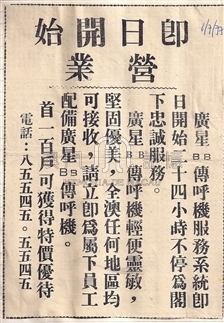 即日開始
營業
廣星BB傳呼機服務系統即
日開始二十四小時不停為閣
下忠誠服務。
廣星BB傳呼機輕便靈敏，
堅固優美，全澳任何地區均
可接收，請立即為屬下員工
配備廣星BB傳呼機。
首一百戶可獲得特價優待
電話：八五五四五。五五四五